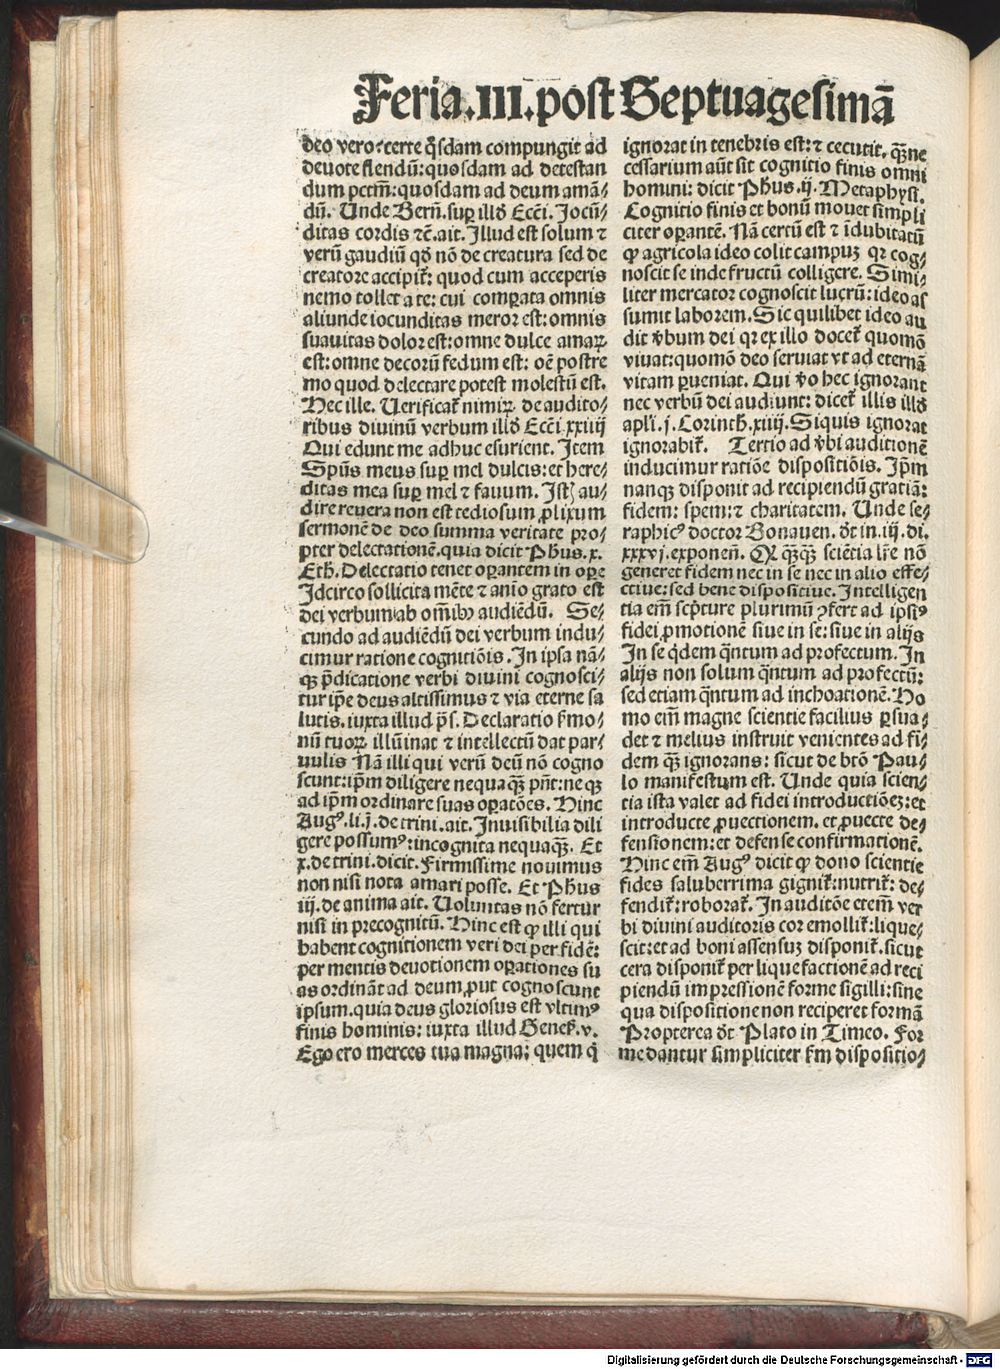 Feria.III.post Septuagesimā
deo vero: certe q̄sdam compungit ad
deuote flendū: quosdam ad detestan
dum pctm̄: quosdam ad deum amā⸗
dū. Unde Bern̄. suꝑ illd̓ Ecci̅. Jocū⸗
ditas cordis ⁊c̄. ait. Illud est solum ⁊
verū gaudiū qd̓ nō de creatura sed de
creatore accipit̄: quod cum acceperis
nemo tollet a te: cui comꝑata omnis
aliunde iocunditas meror est: omnis
suauitas dolor est: omne dulce amaꝝ
est: omne decorū fedum est: oē postre
mo quod delectare potest molestū est.
Hec ille. Uerificat̄ nimiꝝ de audito⸗
ribus diuinū verbum illd̓ Ecci̅. xxiiij
Qui edunt me adhuc esurient. Item
Spūs meus suꝑ mel dulcis: et here⸗
ditas mea suꝑ mel ⁊ fauum. Ist̓ au⸗
dire reuera non est tediosum ꝓlixum
sermonē de deo summa veritate pro⸗
pter delectationē. quia dicit Ph̓us. x.
Eth̓. Delectatio tenet oꝑantem in oꝑe
Idcirco sollicita mēte ⁊ anīo grato est
dei verbum ab om̄ibꝰ audiēdū. Se⸗
cundo ad audiēdū dei verbum indu⸗
cimur ratione cognitiōis. In ipsa nā⸗
qꝫ p̄dicatione verbi diuini cognosci⸗
tur ip̄e deus altissimus ⁊ via eterne sa
lutis. iuxta illud p̄s. Declaratio s̓mo⸗
nū tuoꝝ illūinat ⁊ intellectū dat par⸗
uulis Nā illi qui verū deū nō cogno
scunt: ip̄m diligere nequaqꝫ pn̄t: neqꝫ
ad ip̄m ordinare suas oꝑatōes. Hinc
Augꝰ. li. j. de trini. ait. Inuisibilia dili
gere possumꝰ: incognita nequaqꝫ. Et
x. de trini. dicit. Firmissime nouimus
non nisi nota amari posse. Et Ph̓us
iij. de anima ait. Uoluntas nō fertur
nisi in precognitū. Hinc est ꝙ illi qui
habent cognitionem veri dei per fidē:
per mentis deuotionem oꝑationes su
as ordināt ad deum. ꝓut cognoscunt
ipsum. quia deus gloriosus est vltimꝰ
finis hominis: iuxta illud Genes̓. v.
Ego ero merces tua magna: quem q̓
ignorat in tenebris est: ⁊ cecutit. qꝫne
cessarium aūt sit cognitio finis omni
homini: dicit Ph̓us. ij. Metaphys̓.
Cognitio finis et bonū mouet simpli
citer oꝑantē. Nā certū est ⁊ īdubitatū
ꝙ agricola ideo colit campuꝫ qꝛ cog⸗
noscit se inde fructū colligere. Simi⸗
liter mercator cognoscit lucrū: ideo as
sumit laborem. Sic quilibet ideo au
dit v̓bum dei qꝛ ex illo docet̄ quomō
viuat: quomō deo seruiat vt ad eternā
vitam ꝑueniat. Qui v̓o hec ignorant
nec verbū dei audiunt: dicet̄ illis illd̓
apl̓i. j. Corinth̓. xiiij. Siquis ignorat
ignorabit̄. Tertio ad v̓bi auditionē
inducimur ratiōe dispositiōis. Ip̄m
nanqꝫ disponit ad recipiendū gratiā:
fidem: spem: ⁊ charitatem. Unde se⸗
raphicꝰ doctor Bonauen. d̓t in. iij. di.
xxxvj. exponen̄. Qꝙqꝫ sciētia lr̄e nō
generet fidem nec in se nec in alio effe⸗
ctiue: sed bene dispositiue. Intelligen
tia em̄ scp̄ture plurimū ꝯfert ad ipsiꝰ
fidei ꝓmotionē siue in se: siue in alijs
In se q̓dem q̄ntum ad profectum. In
alijs non solum q̄ntum ad profectū:
sed etiam q̄ntum ad inchoationē. Ho
mo em̄ magne scientie facilius ꝑsua⸗
det ⁊ melius instruit venientes ad fi⸗
dem qꝫ ignorans: sicut de btō Pau⸗
lo manifestum est. Unde quia scien⸗
tia ista valet ad fidei introductiōeꝫ: et
introducte ꝓuectionem. et ꝓuecte de⸗
fensionem: et defense confirmationē.
Hinc em̄ Augꝰ dicit ꝙ dono scientie
fides saluberrima gignit̄: nutrit̄: de⸗
fendit̄: roborat̄. In auditōe etem̄ ver
bi diuini auditoris cor emollit̄: lique⸗
scit: et ad boni assensuꝫ disponit̄. sicut
cera disponit̄ per liquefactionē ad reci
piendū impressionē forme sigilli: sine
qua dispositione non reciperet formā
Propterea d̓t Plato in Timeo. For
me dantur simpliciter s̓m dispositio⸗
Digitalisierung gefördert durch die Deutsche Forschungsgemeinschaft - DFG